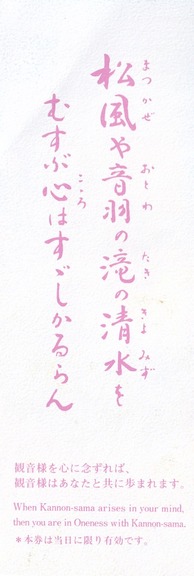 松風や音羽の滝の清水を
むすぶ心はすゞしかるらん
まつかぜ おとわ たき きよみず
こころ
観音様を心に念ずれば、
観音様はあなたと共に歩まれます。
When Kannon-sama arises in your mind,
then you are in Oneness with Kannon-sama.
＊本券は当日に限り有効です。